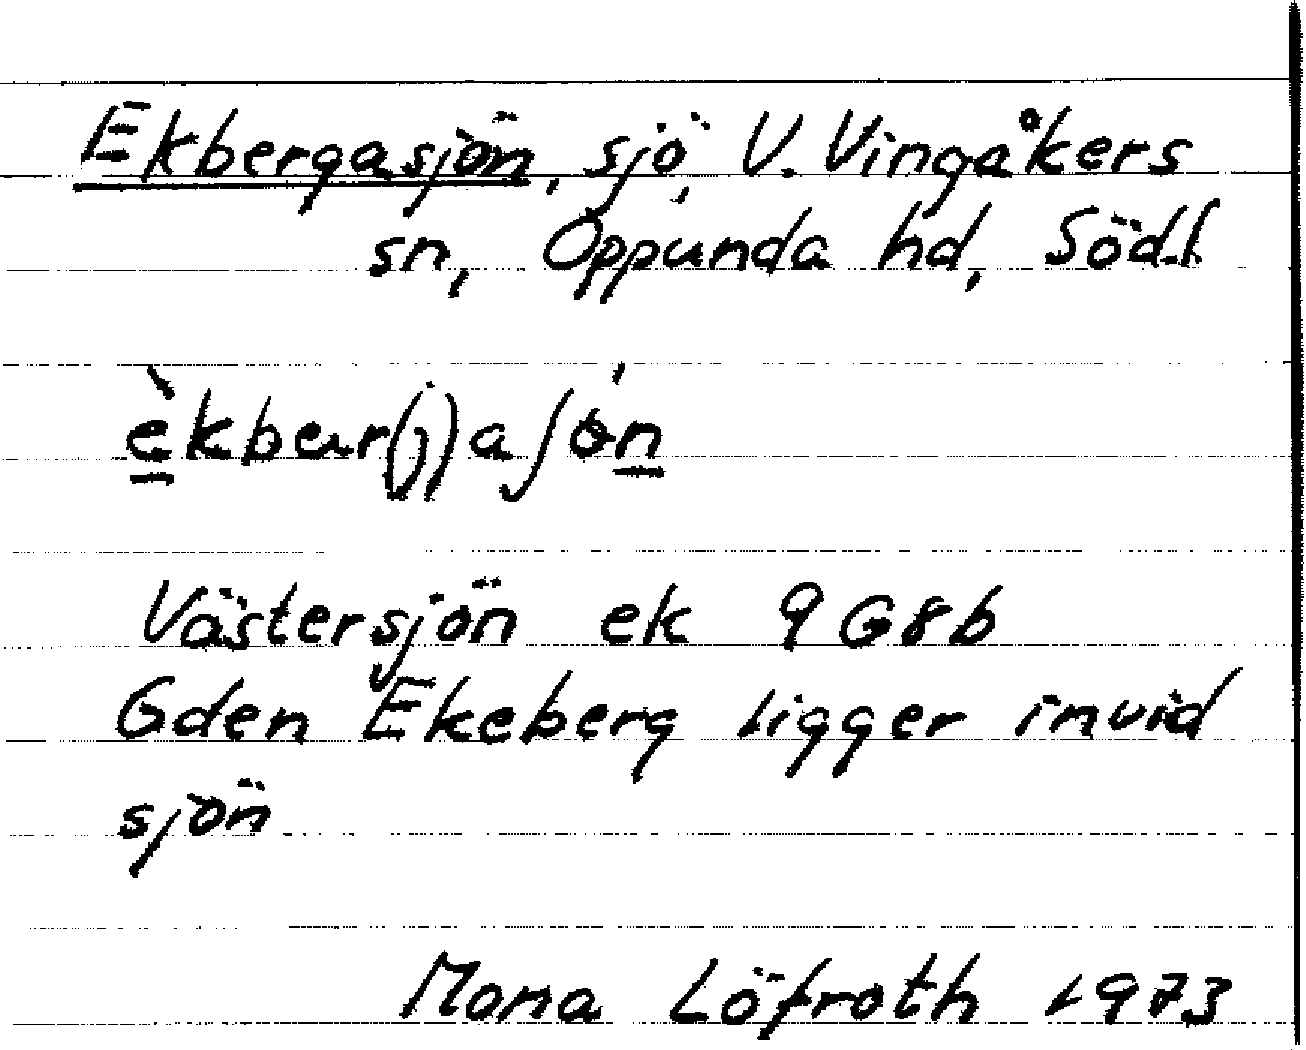 Ekbergasjön, sjö, V. Vingåkers
sn, Oppunda hd, Söd.l
èkbær(j)aʃón
Västersjön ek 9G8b
Gden Ekeberg ligger invid
sjön
Mona Löfroth 1973